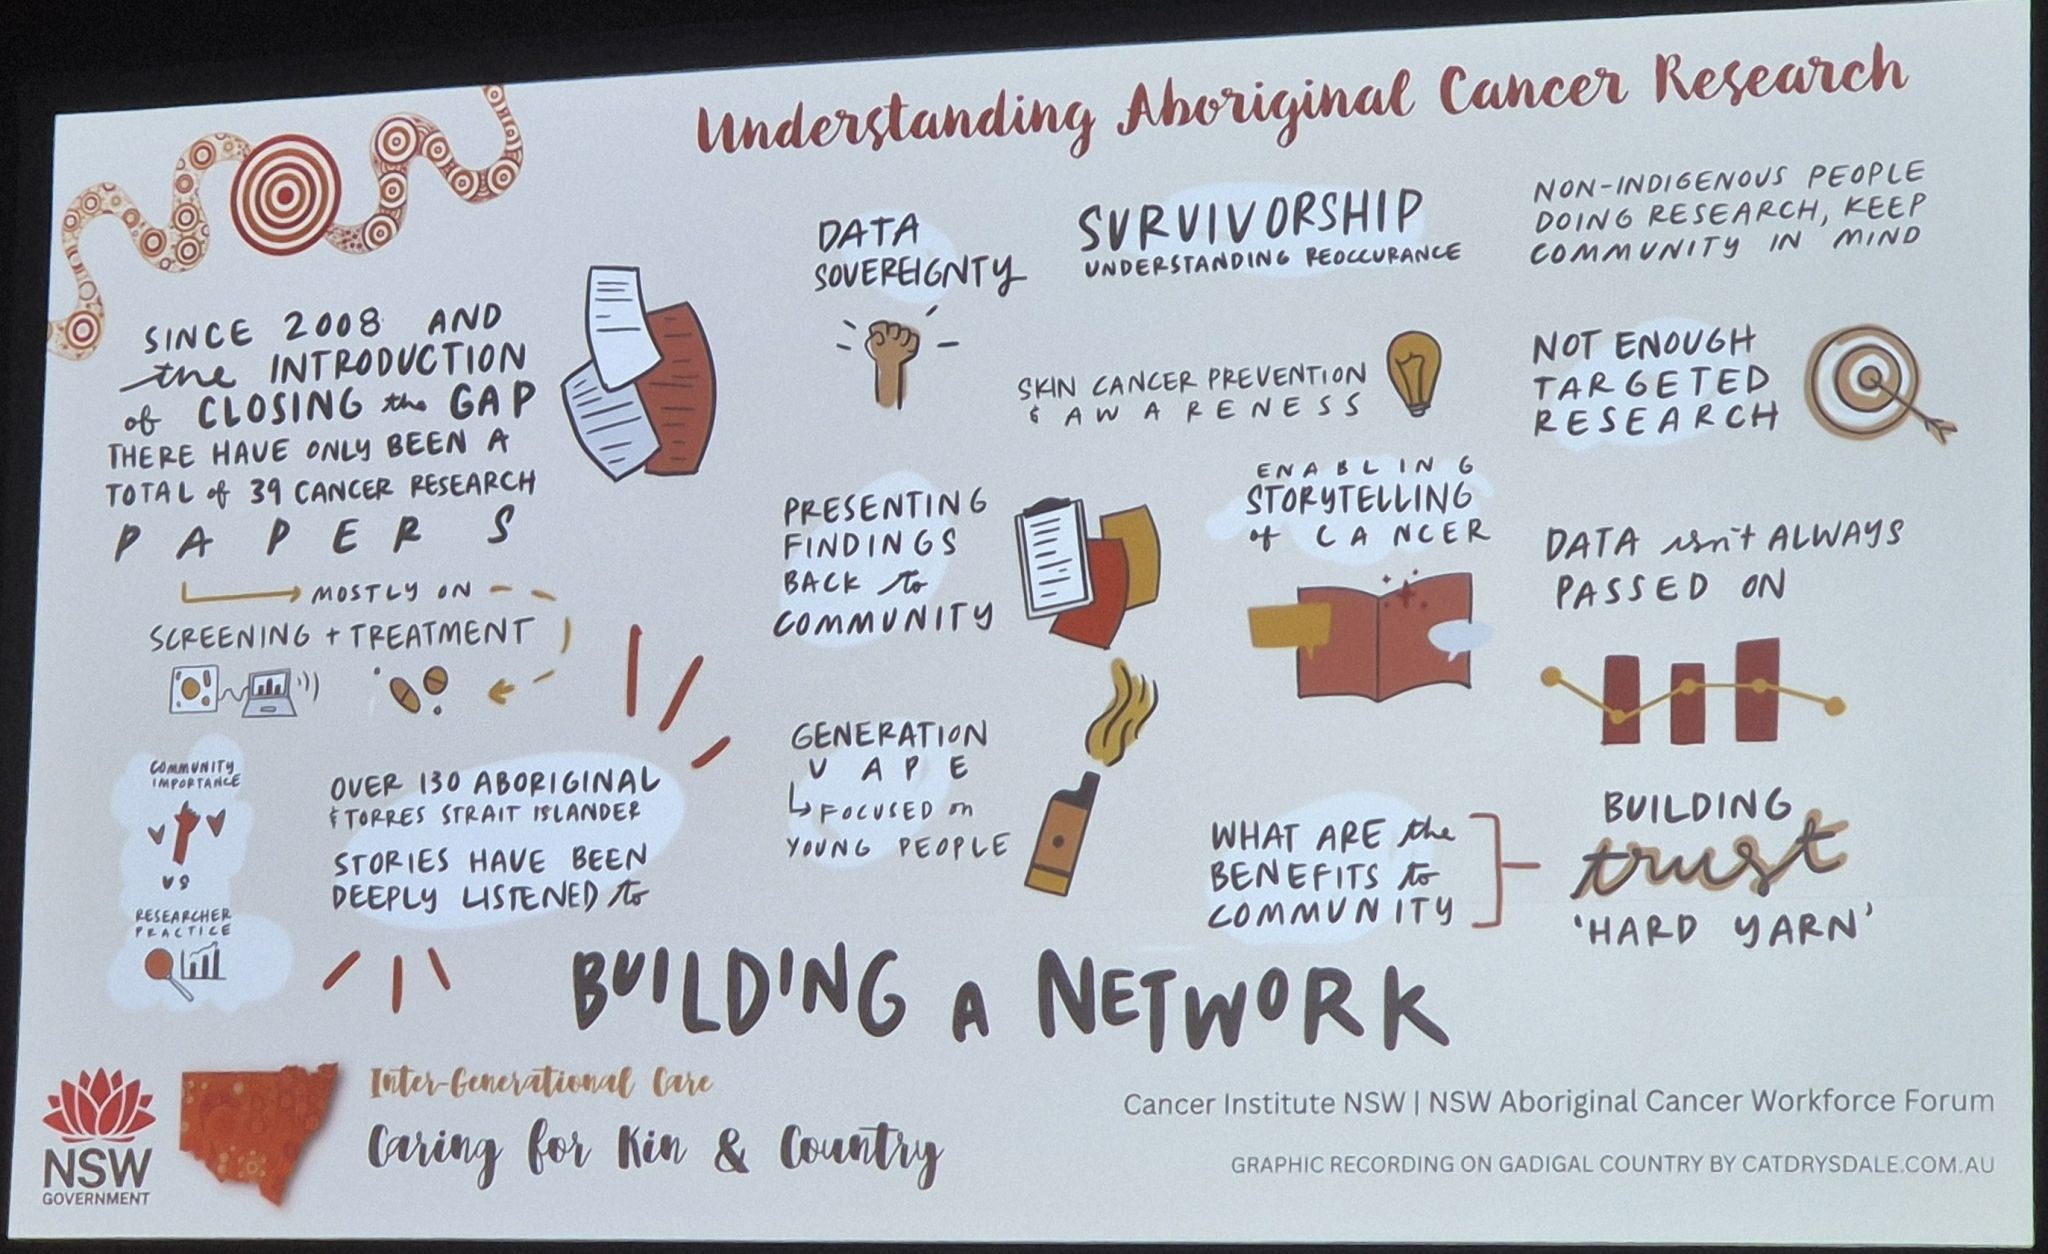 Understanding Aboriginal Cancer Research
SINCE 2008 AND
the INTRODUCTION
of CLOSING the GAP
THERE HAVE ONLY BEEN A
TOTAL of 39 CANCER RESEARCH
PAPERS
MOSTLY ON
SCREENING + TREATMENT
COMMUNITY
IMPORTANCE
VS
RESEARCHER
PRACTICE
OVER 130 ABORIGINAL
& TORRES STRAIT ISLANDER
STORIES HAVE BEEN
DEEPLY LISTENED to
DATA
SOVEREIGNTY
SURVIVORSHIP
UNDERSTANDING REOCCURANCE
SKIN CANCER PREVENTION
& AWARENESS
PRESENTING
FINDINGS
BACK to
COMMUNITY
ENABLING
STORYTELLING
of CANCER
GENERATION
VAPE
FOCUSED on
YOUNG PEOPLE
NON-INDIGENOUS PEOPLE
DOING RESEARCH, KEEP
COMMUNITY IN MIND
NOT ENOUGH
TARGETED
RESEARCH
DATA isn't ALWAYS
PASSED ON
WHAT ARE the
BENEFITS to
COMMUNITY
BUILDING
trust
'HARD YARN'
BUILDING A NETWORK
NSW
GOVERNMENT
Inter-Generational Care
Caring for Kin & Country
Cancer Institute NSW | NSW Aboriginal Cancer Workforce Forum
GRAPHIC RECORDING ON GADIGAL COUNTRY BY CATDRYSDALE.COM.AU